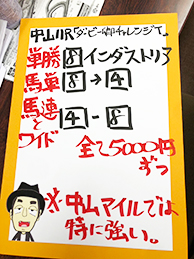 中山11R「ダービー卿チャレンジT」
単勝 8 インダストリア
馬単 8→4
馬連とワイド 4-8
全て5000円ずつ
※中山マイルでは特に強い。